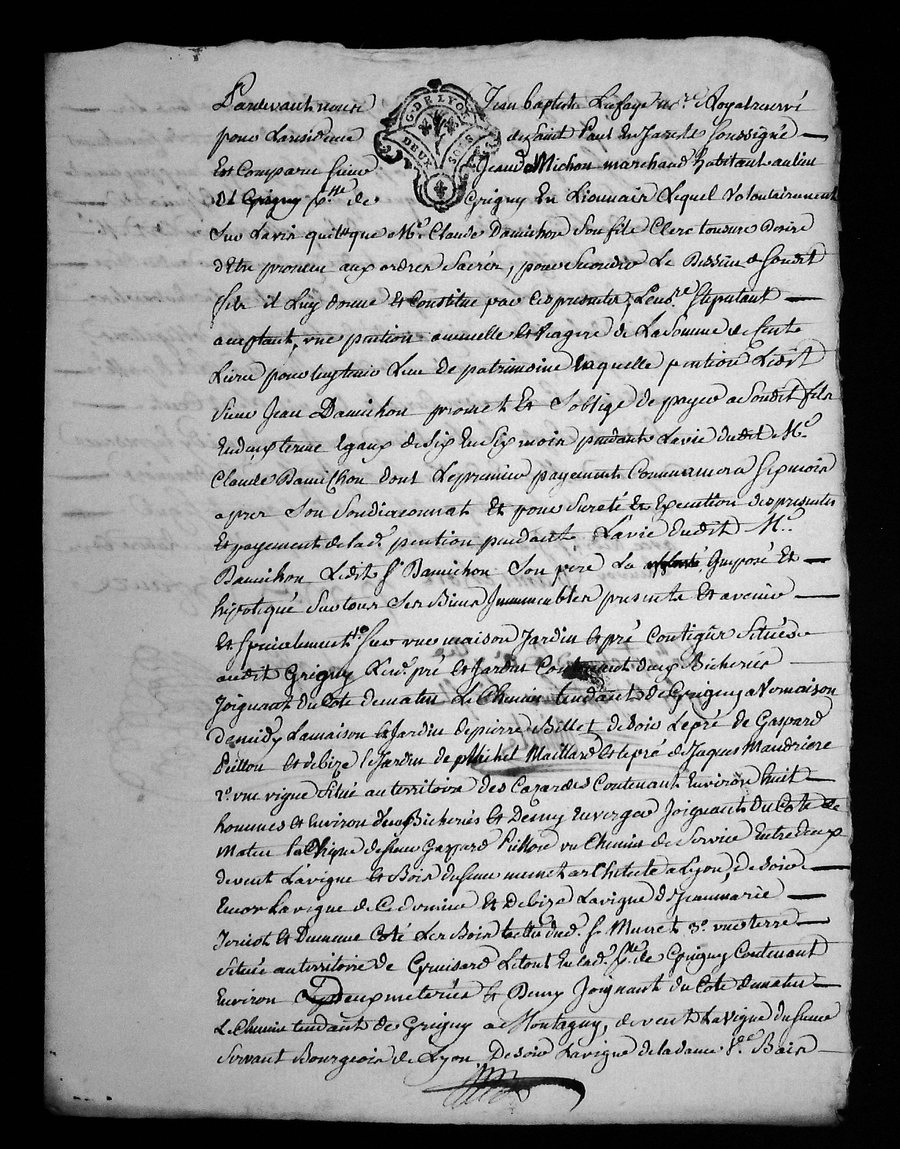 Pardevant nous Jean baptiste Lafaye no.re Royal reservé
pour La residence de Saint Paul En Jarest Soussigné
Est Comparu sieur Jean Michon marchand habitant au lieu
de Grigny p.sse de Grigny En Lionnais Lequel Volontairement
Sur Lavis quil a que M.e Claude Damichon Son fils Clerc tonsure Desire
dEtre promeu aux ordres Sacrés, pour Secondre Le Dessein de Sondit
fils il Luy donne Et Constitue par Ces presentes, Led. Stipulant
acceptant, une pention annuelle et viagere de La Somme de Cent
Livres pour Luy tenir Lieu de patrimoine laquelle pention Ledit
Sieur Jean Damichon promet Et Soblige de payer a Sondit fils
En deux termes Egaux de Six En Six mois pendant La vie dudit M.e
Claude Damichon dont Le premier payement Commencera Six mois
apres Son Soudiaconnat Et pour Sureté Et Execution des presentes
Et payement de lad. pention pendant La vie dudit M.e
Damichon Ledit S.r Damichon Son pere La imposé Et
hipotequé Sur tous Ses Biens Immeubles presents Et avenir
Et Specialement Sur une maison Jardin Et pré Contigus Situés
audit Grigny pré et Jardin Contenant deux Bicherées
Joignant du Coté de matin Le Chemin tendant de Grigny a Vernaison
de midy La maison Et Jardin de pierre Billet de Soir Le pré de Gaspard
Puillon Et de bize le Jardin de Michel Maillard Et le pré de Jaques Mandriere
2.e une vigne Située au territoire des Cazardes Contenant Environ huit
hommes et Environ deux Bicherées Et Demy En verger Joignant du Coté de
Matin la Vigne de Sieur Gaspard Puillon un Chemin de Service Entredeux
de vent La vigne Et Bois du Sieur Architecte a Lyon, de Soir
Encor La vigne de Ce dernier Et De bize La vigne de Jeanmarie
Jericot Et Dun autre Coté Les Bois dud. S.r 3.e une terre
Située au territoire de Cruisard Le tout En lad. p.sse de Grigny Contenant
Environ Deux meterées Et Demy Joignant du Coté de matin
Le Chemin tendant de Grigny a Montagny, de vent La vigne du Sieur
Servant Bourgeois de Lyon De Soir La vigne de la dame V.ve Bain
G. DE LYON
DEUX SOLS